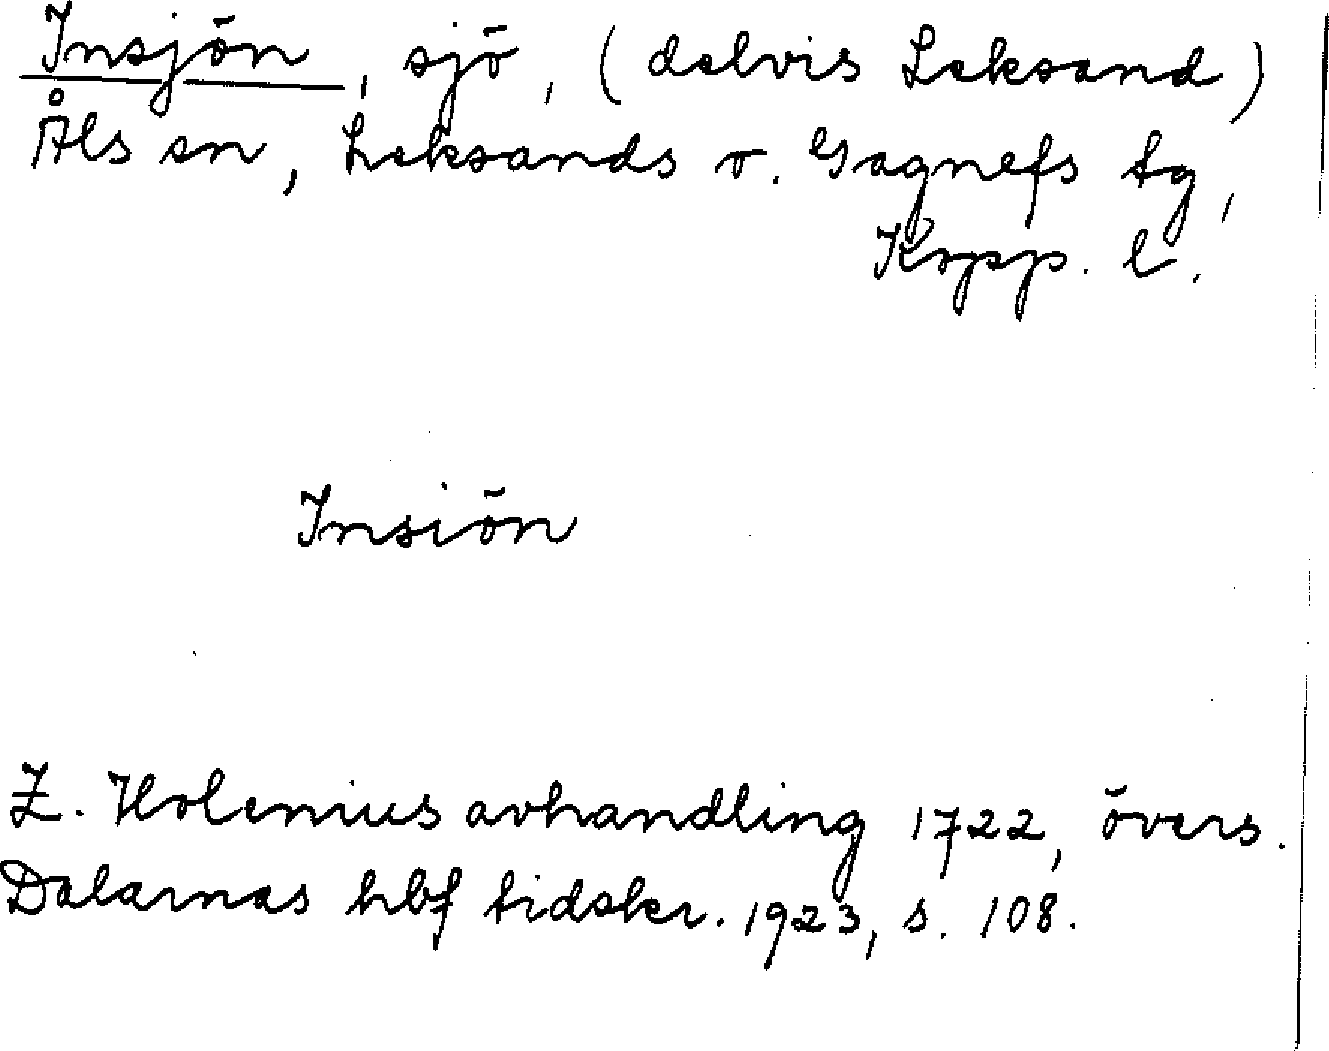 Insjön, sjö, (delvis Leksand)
Åls sn, Leksands o. Gagnefs tg,
Kopp. l.
Insiön
Z. Holenius avhandling 1722, övers.
Dalarnas hbf tidskr. 1923, s. 108.